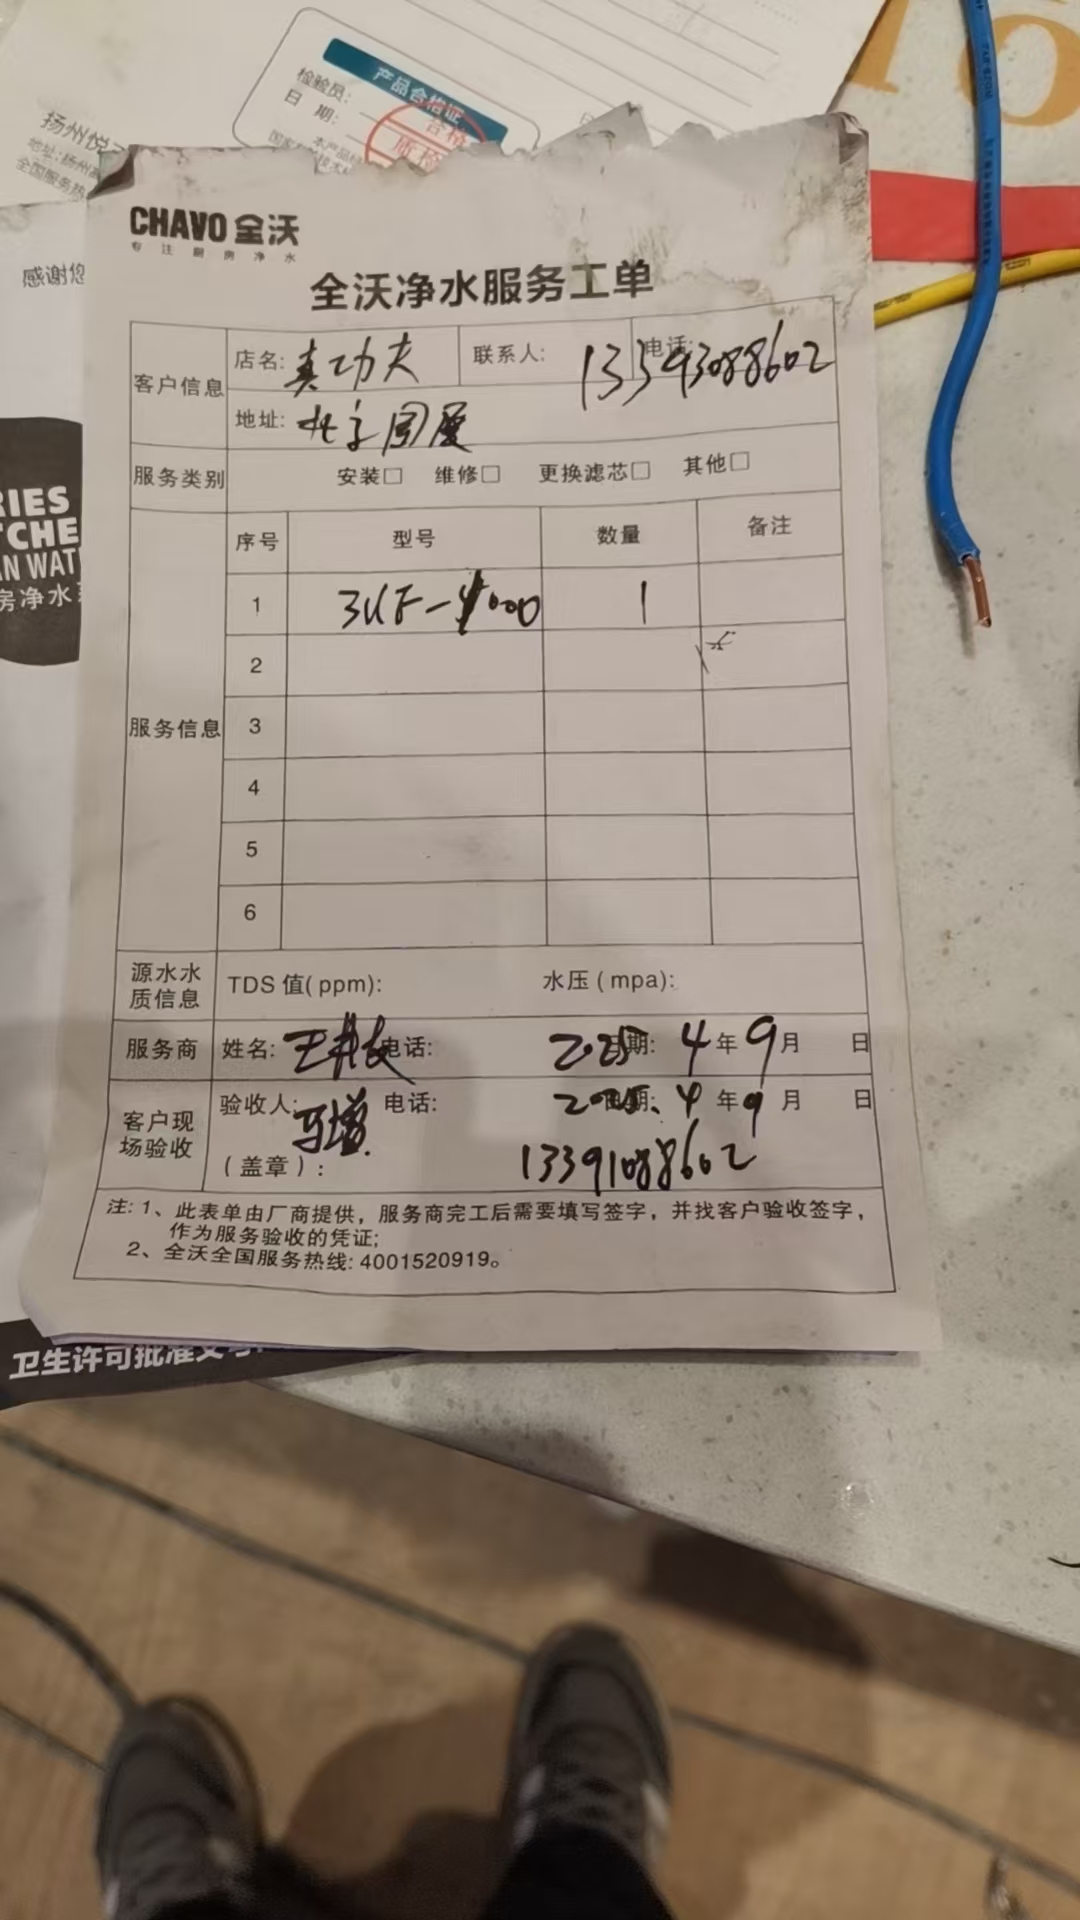 产品合格证
检验员:
日 期:
合格
质检
扬州悦
地址:扬州高
全国服务热
感谢您
CHAVO 全沃
专注厨房净水
全沃净水服务工单
客户信息
店名: 真功夫
联系人:
电话: 13393088602
地址: 北京国展
服务类别
安装□ 维修□ 更换滤芯□ 其他□
服务信息
序号 型号 数量 备注
1 3UF-4000 1
2
3
4
5
6
源水水质信息
TDS 值(ppm): 水压(mpa):
服务商 姓名: 电话: 日期: 2025. 4年9月 日
客户现场验收
验收人: 马增 电话: 日期: 2025. 4年9月 日
(盖章): 13391088602
注: 1、此表单由厂商提供，服务商完工后需要填写签字，并找客户验收签字，
作为服务验收的凭证;
2、全沃全国服务热线: 4001520919。
RIES
TCHE
AN WAT
房净水
卫生许可批准文号